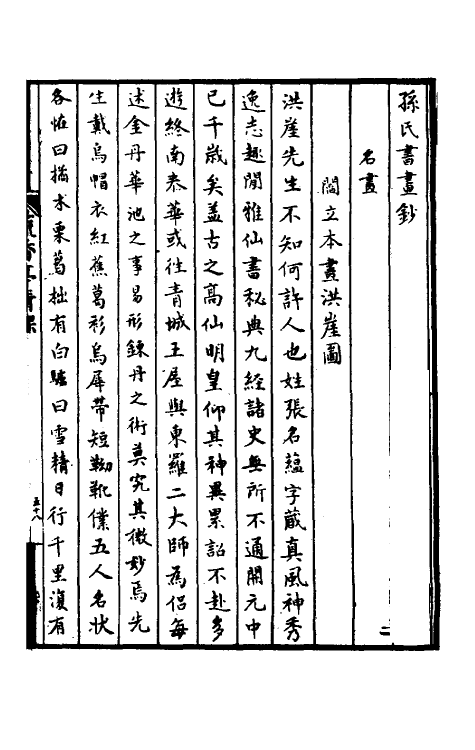 孫氏書畫鈔
名畫
二
閻立本畫洪崖圖
洪崖先生不知何許人也姓張名藴字藏真風神秀
逸志趣閒雅仙書秘典九經諸史無所不通開元中
已千歳矣盖古之高仙明皇仰其神異累詔不赴多
遊終南泰華或往青城王屋與東羅二大師為侶每
述金丹華池之事易形鍊丹之術莫究其微妙焉先
生戴烏帽衣紅蕉葛衫烏犀帶短靿靴僕五人名狀
各恠曰橘术栗葛拙有白驢曰雪精日行千里復有
五十八